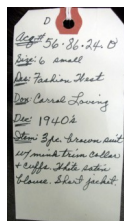 D
Acq# 56.86.24.D
Size: 6 small
Des: Fashion West
Don: Carral Loving
Dec: 1940's
Item: 3pc. brown suit
w/ mink trim collar
+ cuffs. White satin
blouse. Short jacket.